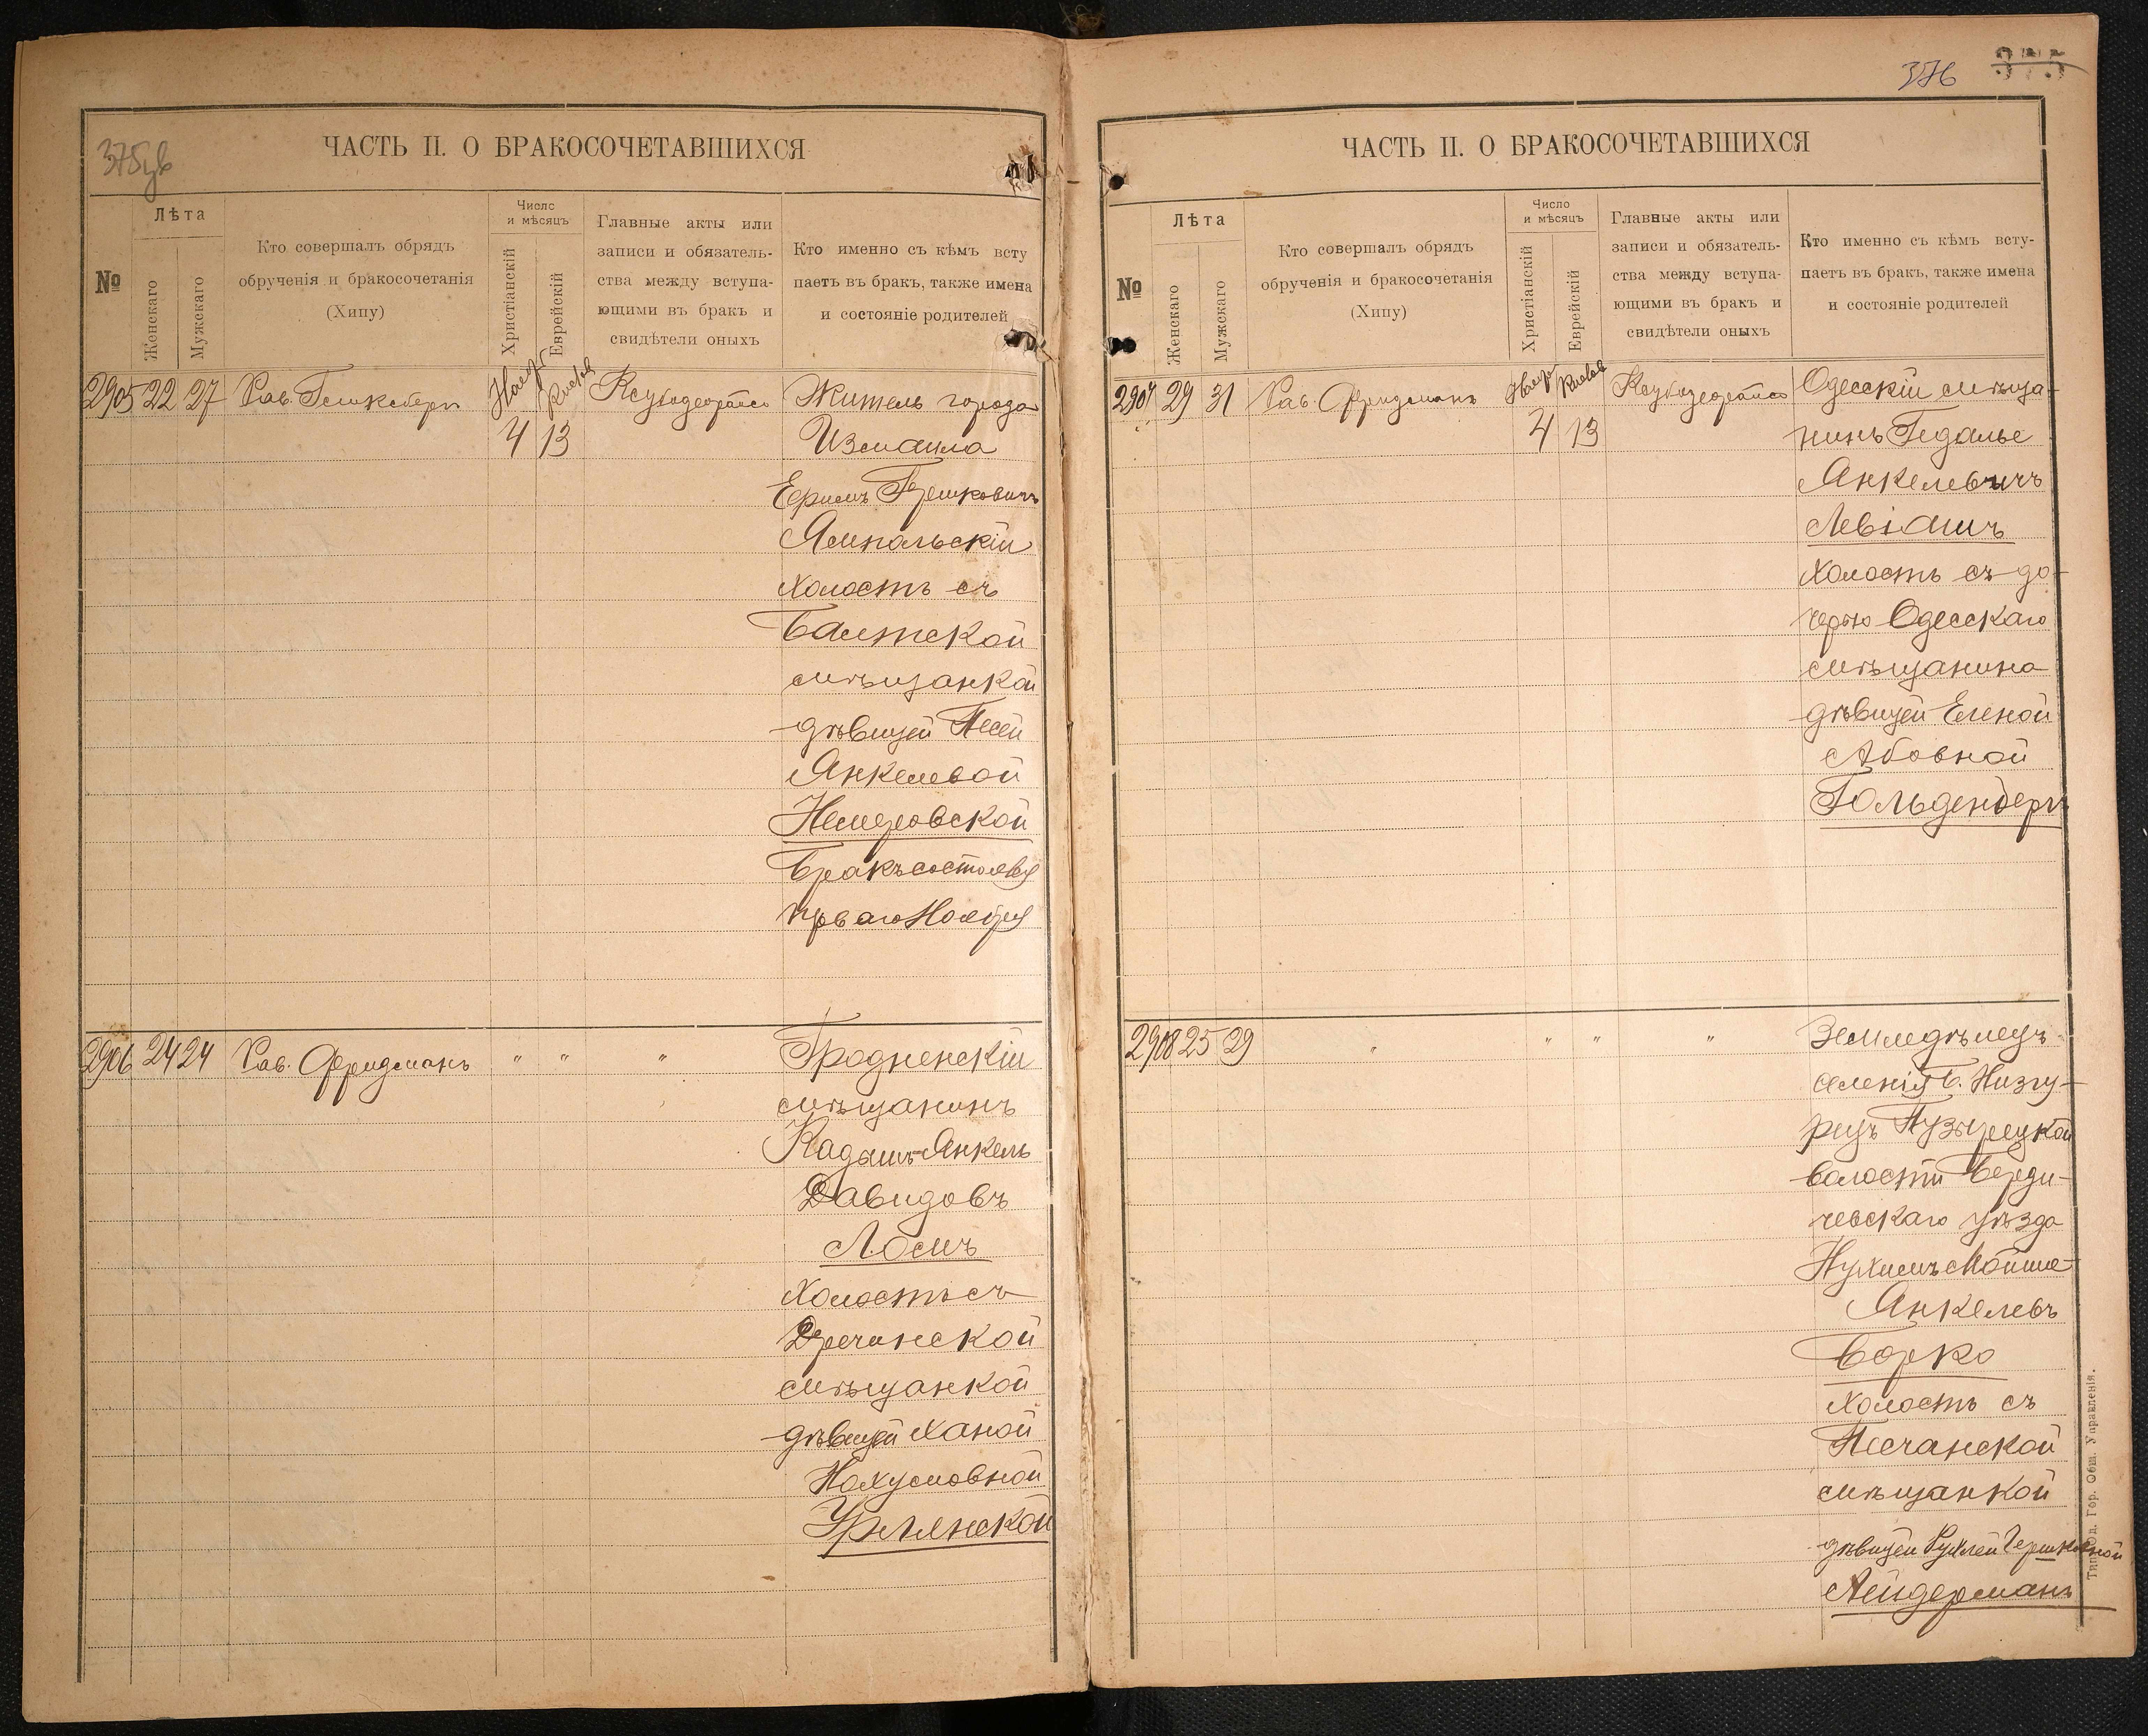 375 ЧАСТЬ II. О БРАКОСОЧЕТАВШИХСЯ
№
Лѣта
Женскаго
Мужскаго
Кто совершалъ обрядъ
обрученія и бракосочетанія
(Хипу)
Число
и мѣсяцъ
Христіанскій
Еврейскій
Главные акты или
записи и обязатель-
ства между вступа-
ющими въ бракъ и
свидѣтели оныхъ
Кто именно съ кѣмъ всту
паетъ въ бракъ, также имена
и состояніе родителей
2905 22 27 Рав. Ноября Кислев Житель города
4 13 Измаила
Ямпольскій
холостъ съ
Балтской
мѣщанкой
дѣвицей Песей
Янкелевой
Немеровской
Бракъ состоялся
перваго Ноября
2906 24 24 Рав. Фридманъ " " " Гродненскій
мѣщанинъ
Кадышъ-Янкель
Давидовъ
Лосмъ
Холостъ съ
Дречинской
мѣщанкой
дѣвицей Ханой
Нахумовной
Урлянской
376 375
ЧАСТЬ II. О БРАКОСОЧЕТАВШИХСЯ
№
Лѣта
Женскаго
Мужскаго
Кто совершалъ обрядъ
обрученія и бракосочетанія
(Хипу)
Число
и мѣсяцъ
Христіанскій
Еврейскій
Главные акты или
записи и обязатель-
ства между вступа-
ющими въ бракъ и
свидѣтели оныхъ
Кто именно съ кѣмъ всту-
паетъ въ бракъ, также имена
и состояніе родителей
2907 29 31 Рав. Фридманъ Ноябр Кислев Одесскій мѣща-
4 13 нинъ Гедалье
Янкелевичъ
Левіашъ
Холостъ съ до-
черью Одесскаго
мѣщанина
дѣвицей Еленой
Абовной
Гольденбергъ
2908 25 29 " " " " Земледѣлецъ
селенія Б. Низгу-
рецъ Пузырецкой
волости Берди-
чевскаго уѣзда
Нухимъ Мойше-
Янкелевъ
Борко
холостъ съ
Песчанской
мѣщанкой
дѣвицей Рухлей Гершковной
Лейдерманъ
Тип. Од. Гор. Общ. Управленія.